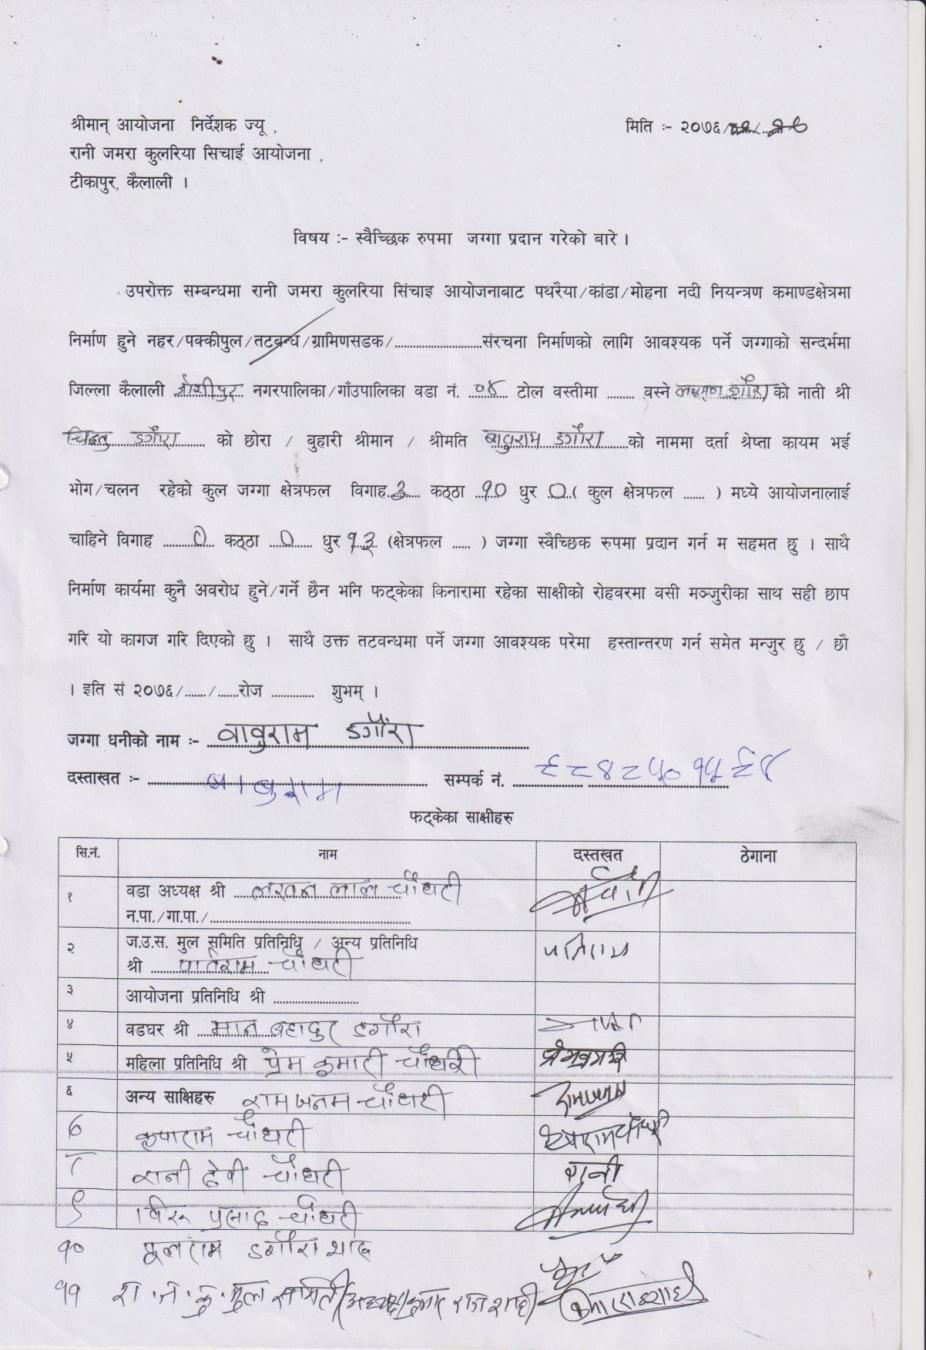 श्रीमान् आयोजना निर्देशक ज्यू ,
मिति :- २०७६/
रानी जमरा कुलरिया सिचाई आयोजना ,
टीकापुर, कैलाली ।
विषय :- स्वैच्छिक रुपमा जग्गा प्रदान गरेको बारे ।
उपरोक्त सम्बन्धमा रानी जमरा कुलरिया सिंचाइ आयोजनाबाट पथरैया/कांडा/मोहना नदी नियन्त्रण कमाण्डक्षेत्रमा
निर्माण हुने नहर/पक्कीपुल/तटबन्ध/ग्रामिणसडक/......................संरचना निर्माणको लागि आवश्यक पर्ने जग्गाको सन्दर्भमा
जिल्ला कैलाली जोशीपुर नगरपालिका/गाँउपालिका वडा नं. ०४ टोल वस्तीमा ....... वस्ने लक्ष्मण डगौरा को नाती श्री
डगौरा को छोरा / वुहारी श्रीमान / श्रीमति बाबुराम डगौरा को नाममा दर्ता श्रेष्ता कायम भई
भोग/चलन रहेको कुल जग्गा क्षेत्रफल विगाह ३ कठ्ठा १० धुर ० ( कुल क्षेत्रफल ...... ) मध्ये आयोजनालाई
चाहिने विगाह ० कठ्ठा ० धुर १३ (क्षेत्रफल ..... ) जग्गा स्वैच्छिक रुपमा प्रदान गर्न म सहमत छु । साथै
निर्माण कार्यमा कुनै अवरोध हुने/गर्ने छैन भनि फट्केका किनारामा रहेका साक्षीको रोहवरमा वसी मञ्जुरीका साथ सही छाप
गरि यो कागज गरि दिएको छु । साथै उक्त तटवन्धमा पर्ने जग्गा आवश्यक परेमा हस्तान्तरण गर्न समेत मन्जुर छु / छौ
। इति सं २०७६/....../......रोज ............ शुभम् ।
जग्गा धनीको नाम :- बाबुराम डगौरा
दस्ताखत :- बाबुराम सम्पर्क नं. ९८४८५०१५६४
फट्केका साक्षीहरु
सि.नं. नाम दस्तखत ठेगाना
१ वडा अध्यक्ष श्री लखन लाल चौधरी
न.पा./गा.पा./
२ ज.उ.स. मुल समिति प्रतिनिधि / अन्य प्रतिनिधि
श्री पतिराम चौधरी पतिराम
३ आयोजना प्रतिनिधि श्री
४ वडघर श्री मान बहादुर डगौरा
५ महिला प्रतिनिधि श्री प्रेम कुमारी चौधरी प्रेमकुमारी
६ अन्य साक्षिहरु रामजनम चौधरी रामजनम
७ कृपाराम चौधरी कृपाराम चौधरी
८ रानी देवी चौधरी रानी
९ प्रसाद चौधरी
१० फूलराम डगौरा थारु
११ रा.ज.कु. मुल समिति/अध्यक्ष/